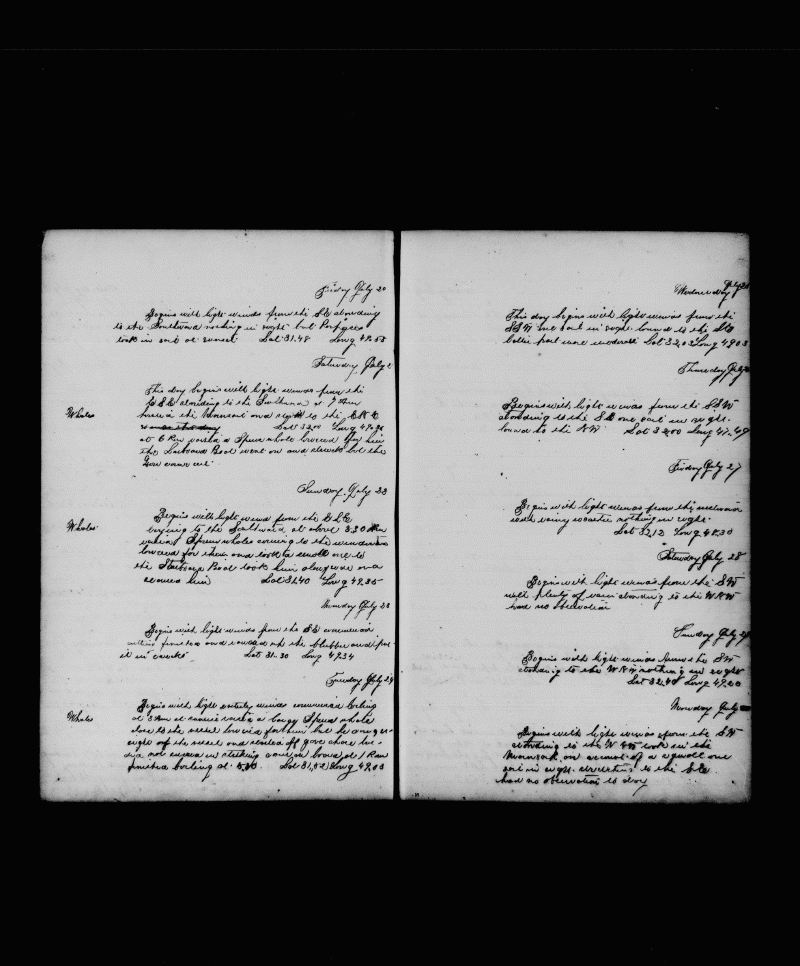 Friday July 20
Begins with light winds from the SE standing
to the Southward nothing in sight but Porpoises
took in sail at sunset Lat 31,48 Long
Saturday July 2
This day begins with light winds from the
standing to the Southard at 7 Am
Whales
Lat 32,00 Long
at 6 Am a Sperm whale lowered for him
the Larboard Boat went on and struck but the
Iron came out
Sunday July 22
Begins with light wind from the
Whales
to the Southward at about 3.30
Sperm whales coming to the windward
lowered for them and took a small one to
the Starboard Boat took him alongside and
him Lat 31,40 Long 49,35
Monday July 23
Begins with light winds from the SE commenced
cutting finished and the blubber and
it in Lat 31-30 Long 49,34
Tuesday July 24
Begins with light winds commenced boiling
at 3 Am a large Sperm whale
Whales
close to the vessel lowered for him but he
sight of the vessel and started off gave chase but
did not succeed in striking came on board at 1
finished boiling at Lat 31,52 Long 49,03
Wednesday July 2
This day begins with light winds from the
SSW one sail in sight bound to the
latter part more moderate Lat 32,02 Long 49,03
Thursday July
Begins with light winds from the SSW
standing to the SE one sail in sight
bound to the NW Lat 32,00 Long
Friday July 27
Begins with light winds from the
with rainy weather nothing in sight
Lat 32,12 Long 48,30
Saturday July 28
Begins with light winds from the SW
with plenty of rain standing to the WNW
had no observation
Sunday July 29
Begins with light winds from the SW
standing to the WNW nothing in sight
Lat 32,48 Long 49,20
Monday July
Begins with light winds from the SW
standing to the W took in the
on account of a squall one
sail in sight to the SE
had no observation to day